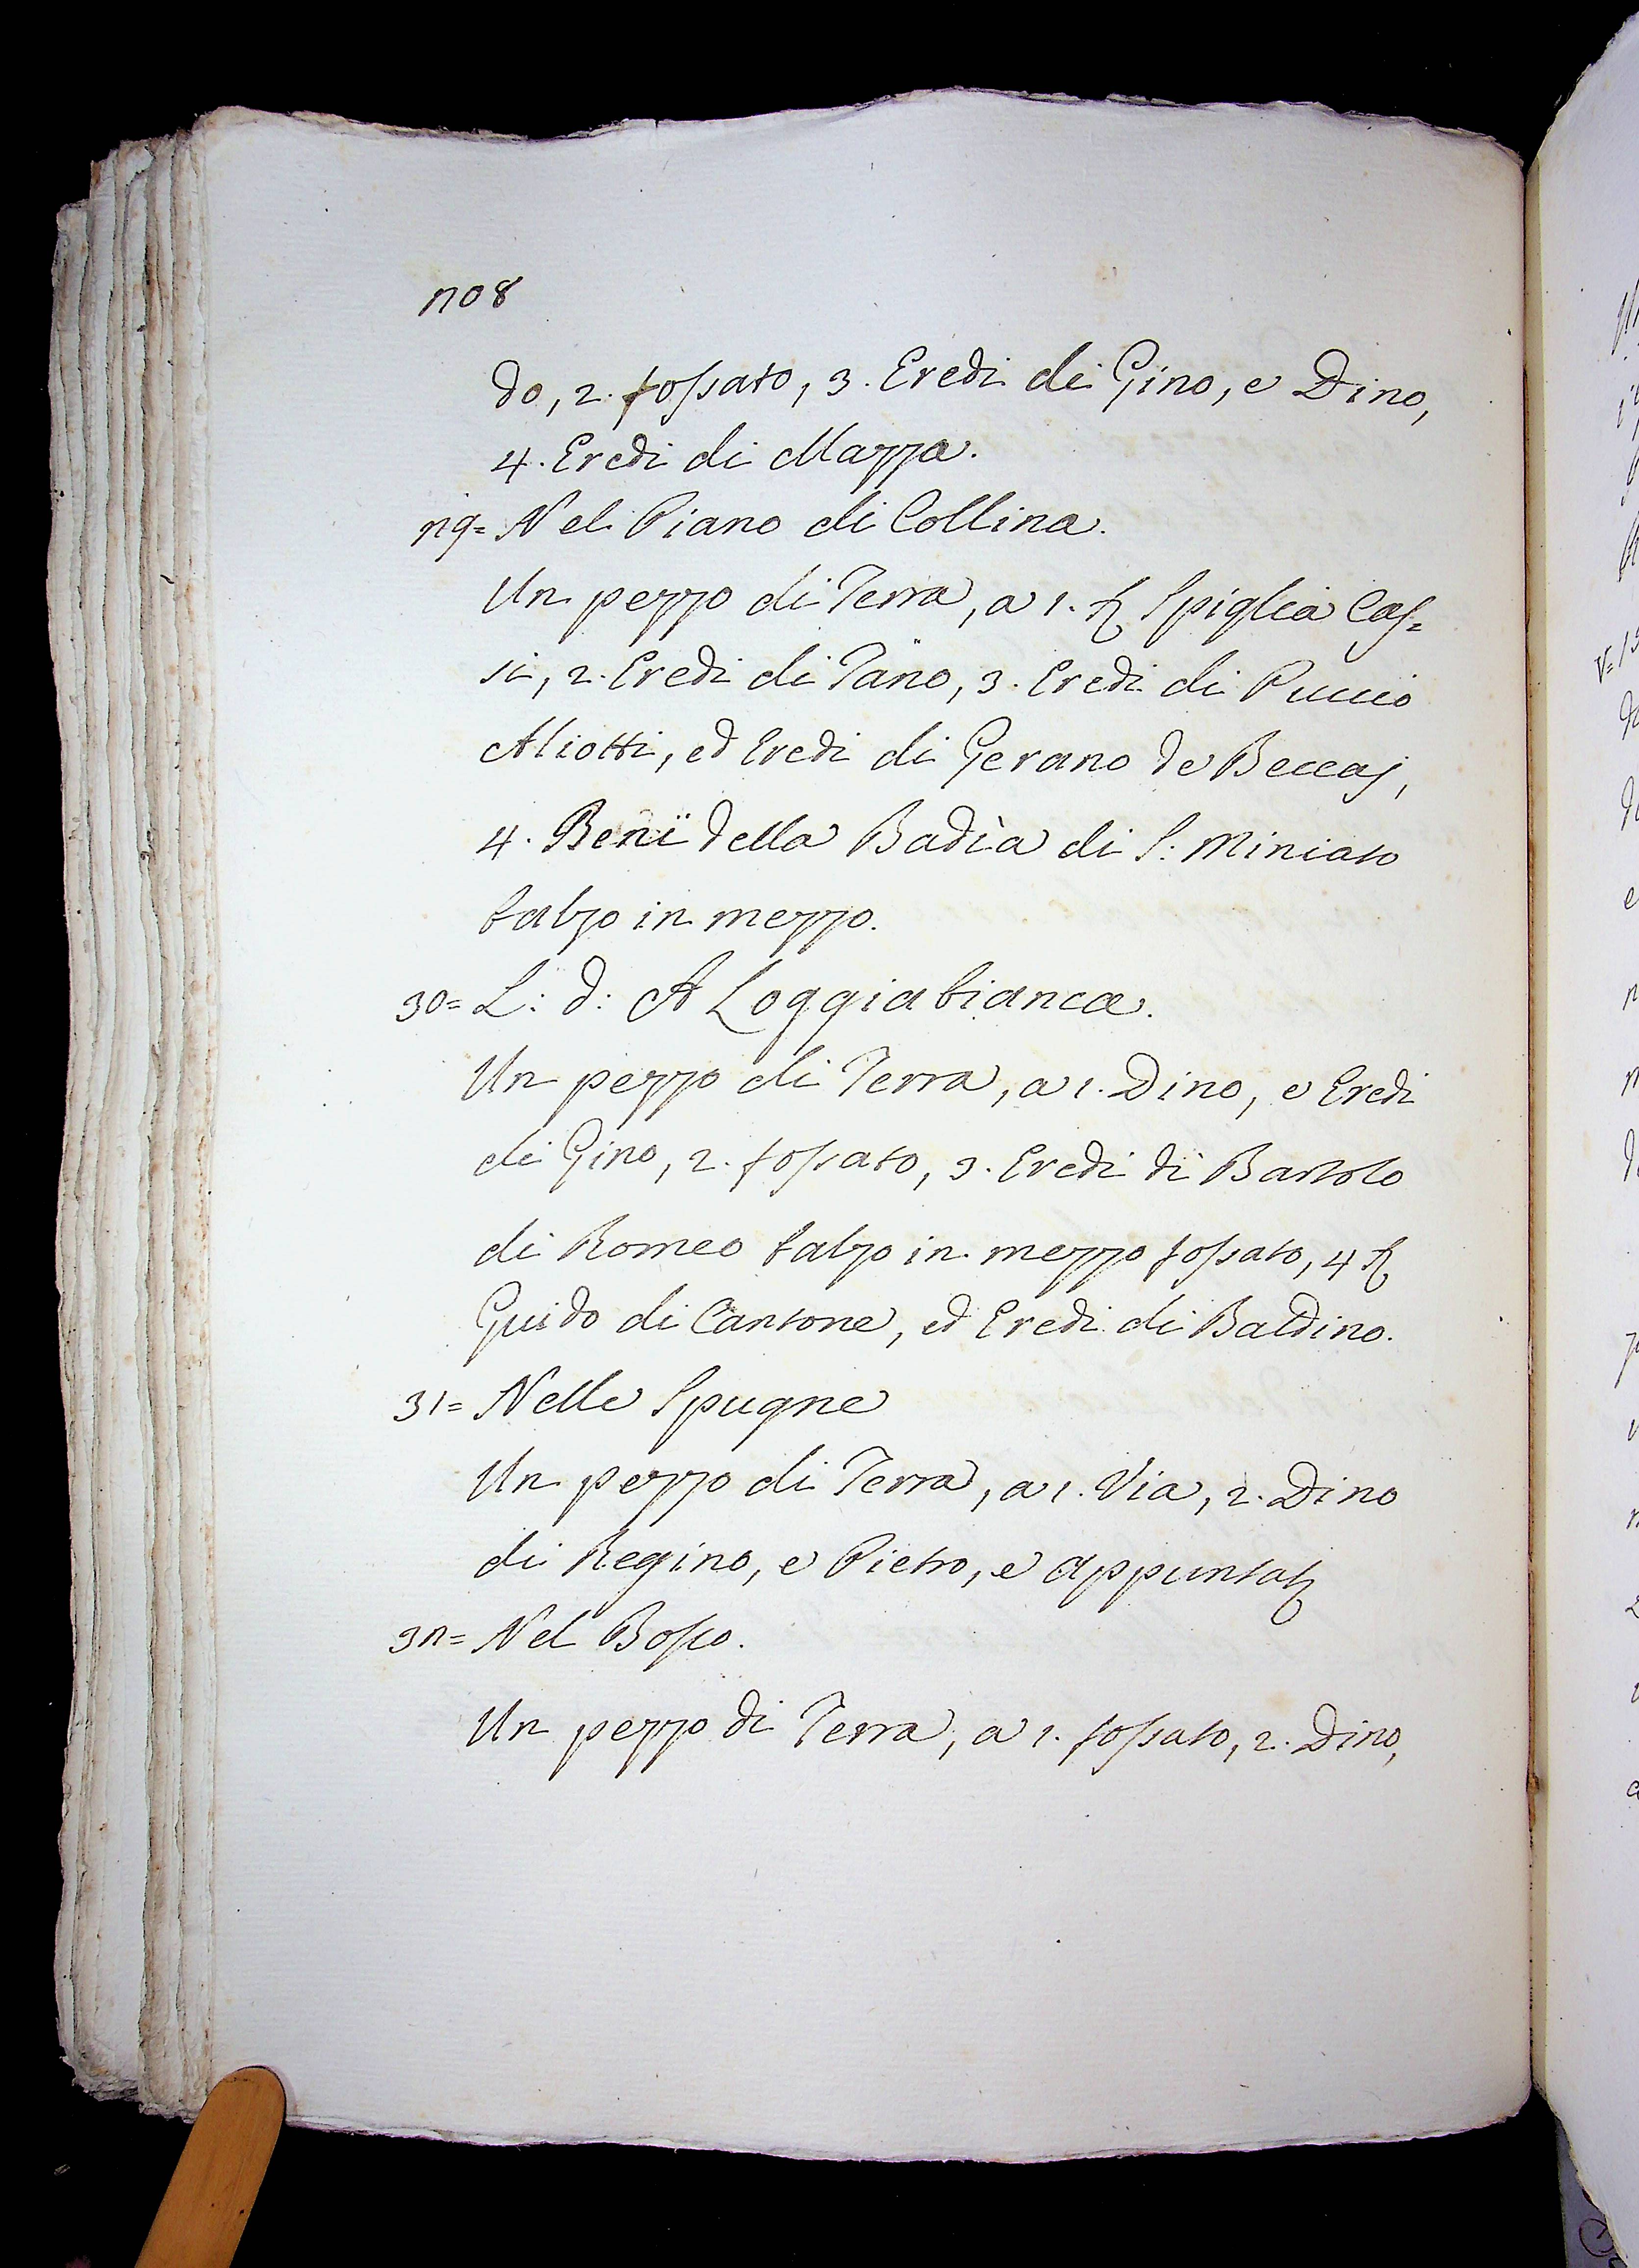 208
do, 2. fossato, 3. Eredi di Gino, e Dino,
4. Eredi di Mazza.
29= Nel Piano di Collina.
Un pezzo di Terra, a 1. Spiglia Cas=
si, 2. Eredi di Tano, 3. Eredi di Puccio
Aliotti, ed Eredi di Gerano de Beccaj,
4. Beni della Badìa di S: Miniato
balzo in mezzo.
30= L: d: A Loggiabianca.
Un pezzo di Terra, a 1. Dino, e Eredi
di Gino, 2. fossato, 3. Eredi di Bartolo
di Romeo balzo in mezzo fossato, 4
Guido di Cantone, ed Eredi di Baldino.
31= Nelle Spugne
Un pezzo di Terra, a 1. Via, 2. Dino
di Regino, e Pietro, e
32= Nel Bosco.
Un pezzo di Terra, a 1. fossato, 2. Dino,